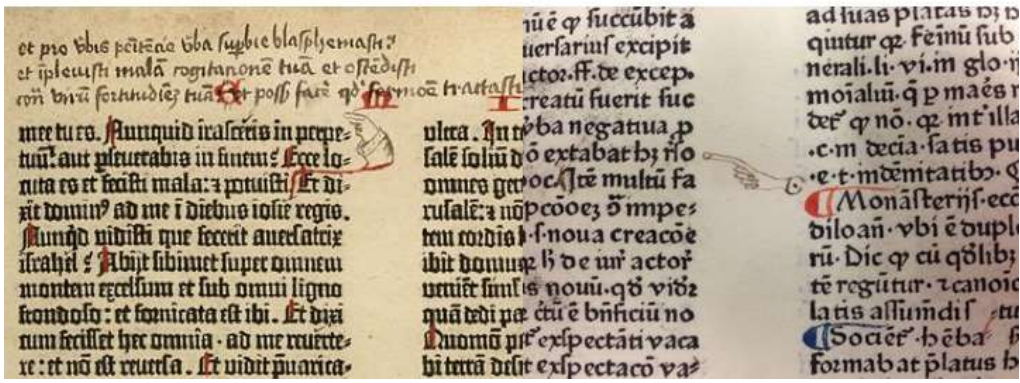 et pro v̄bis pēitēcie v̄ba suꝑbie blasphemasti
et īplevisti malā cogitationē tuā et ostēdisti
cōt̄ virū fortitudiēȝ tuā Et poss facē qd̓ sermoē tractasti
mee tu es. Nunquid irasceris in perpe-
tuū: aut ꝑseverabis in finem? Ecce lo-
cuta es et fecisti mala: ⁊ potuisti. Et di-
xit dominꝰ ad me ī diebus iosie regis.
Nunqd vidisti que fecerit aversatrix
israhel? Abijt sibimet super omnem
montem excelsum et sub omni ligno
frondoso: et fornicata est ibi. Et dixi
cum fecisset hec omnia · ad me reverte-
re: et nō est reversa. Et vidit p̄uarica-
ultra. In te
salē soliū d
omnes gen
rusalē: ⁊ nō
tem cordis
ibit domus
veniēt simł
quā dedi pa
Quomō
bi terrā desi
nū ē ꝙ succūbit a
uersarius excipit
actor. ff. de excep.
creatū fuerit suc
v̄ba negatiua p
ō extabat hȝ rn̄o
oc. Itē multū fa
pcōoeȝ d̄ impe-
·s·noua creacōe
ꝗ h̄ de un̄ actor̄
is nouū. qd̓ vid̓ꝛ
ctū ē bn̄ficiū no
exspectāti vaca
exspectacō va-
ad suas p̄latas hȝ
quitur qꝛ. feīnū sub
nerali. li. vi. in glo.
moīaliū. q̄ p maēs
det̄ ꝙ nō. qꝛ. int̄ illa
.c. m decia. satis pu
.e. t. indēnitatibꝫ.
Monāsterijs. ecc
diloān. vbi ē duplᵉ
rū. Dic ꝙ cū qd̓libȝ
tē regūtur. ⁊ canoic
latis assumdis
Societ̄. hēba
formabat p̄latus